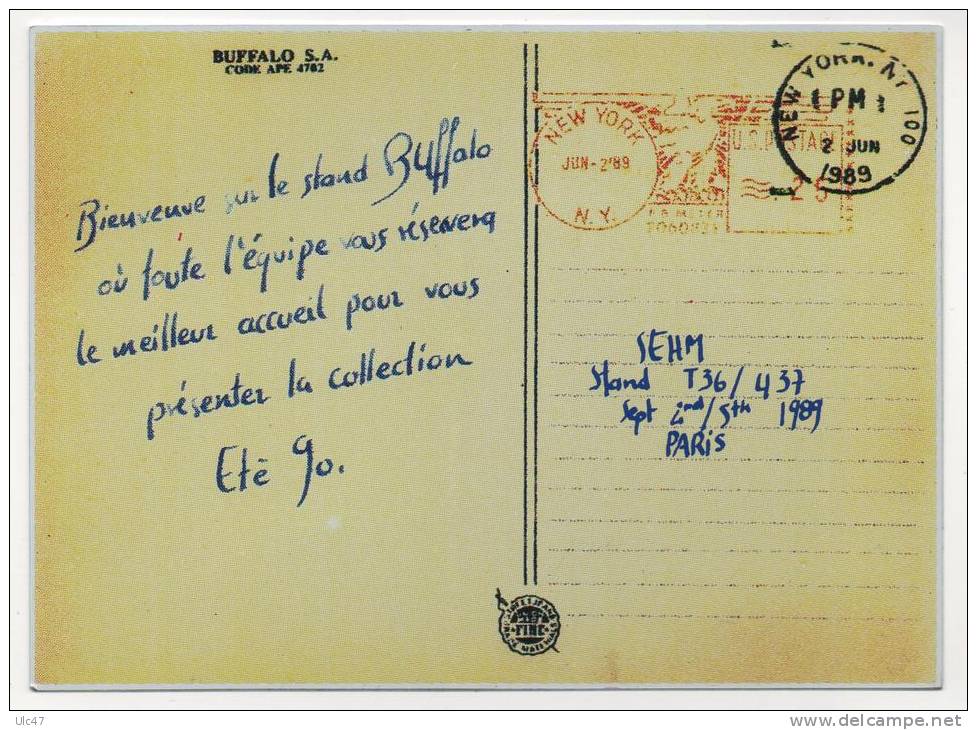 BUFFALO S.A.
CODE APE 4702
Bienvenue sur le stand Buffalo
où toute l'équipe vous réservera
le meilleur accueil pour vous
présenter la collection
Eté 90.
NEW YORK
JUN-2'89
N.Y.
U.S. POSTAGE
P.B. METER
NEW YORK, NY 100
PM
2 JUN
1989
SEHM
Stand T36/437
Sept 2nd/5th 1989
PARIS
Ulc47
www.delcampe.net